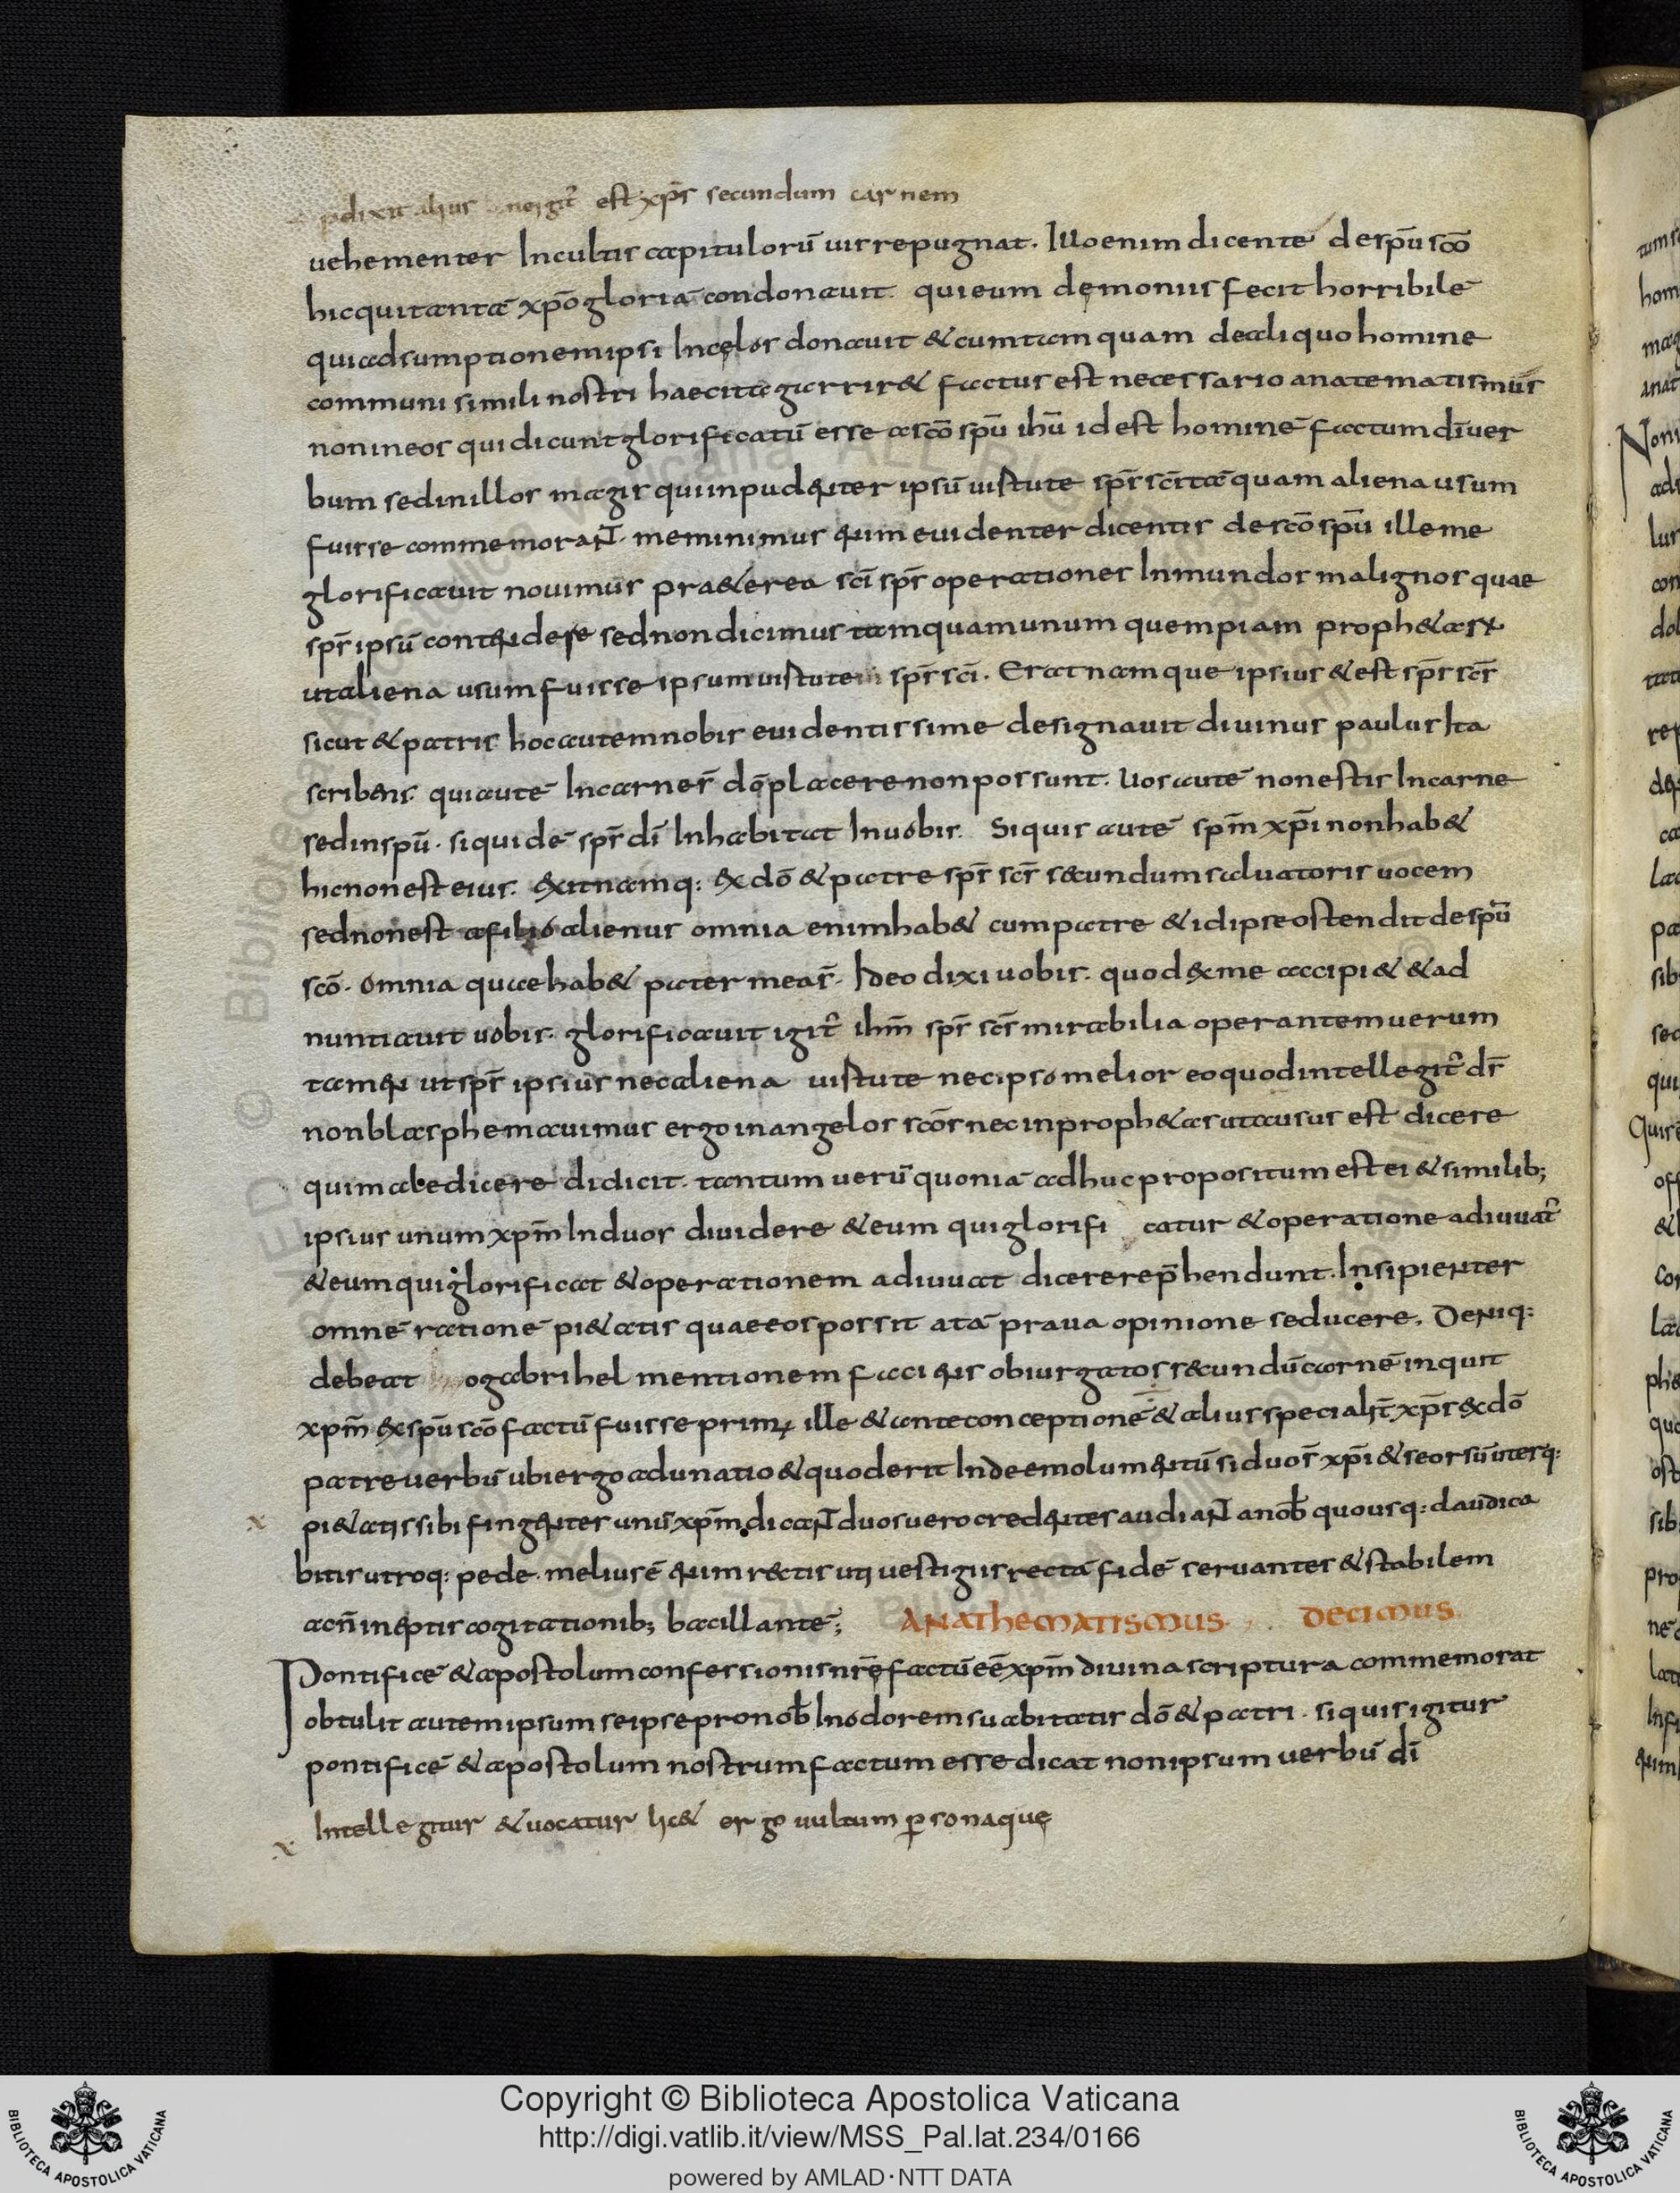 dixit alius est xp̄s secundum carnem
uehementer Incultis capitulorū uir repugnat. Illo enim dicente de spū scō
hic qui tantā xpō gloriā condonauit. qui eum dęmoniis fecit horribilē
qui adsumptionem ipsi Incęlos donauit & cum tamquam de aliquo homine
communi simili nostri haec ita garrir& factus est necessario anatematismus
non in eos qui dicunt glorificatū esse a scō spū ihū id est hominē factum dī uer
bum sed in illos magis qui inpudenter ipsū uirtute spr̄ scī tā quam aliena usum
fuisse commemorant. meminimus enim euidenter dicentis de scō spū ille me
glorificauit nouimus pra&erea scī spr̄ operationes Inmundos malignos quae
spr̄ ipsū contendere sed non dicimus tamquam unum quempiam proph&arx
ut aliena usum fuisse ipsum uirtutem spr̄ scī. Erat namque ipsius & est spr̄ scr̄
sicut & patris hoc autem nobis euidentissime designauit diuinus paulus Ita
scribens. qui autē Incarner̄ dō placere non possunt. Uos autē non estis Incarne
sed in spū. siquidē spr̄ dī Inhabitat Inuobis. Siquis autē spm̄ xpī non hab&
hic non est eius. exit namq: ex dō & patre spr̄ scr̄ secundum saluatoris uocem
sed non est a filio alienus omnia enim hab& cum patre & id ipse ostendit de spū
scō. omnia quae hab& pater mea sr̄. Ideo dixi uobis. quod ex me accipi& & ad
nuntiauit uobis. glorificauit igit̄ ihm̄ spr̄ scr̄ mirabilia operantem uerum
tamen ut spr̄ ipsius nec aliena uirtute nec ipso melior eo quod intellegit̄ ds̄
non blasphemauimus ergo in angelos scōs nec in proph&as ut ausus est dicere
qui maledicere didicit. tantum uerū quoniā adhuc propositum est ei & similib;
ipsius unum xpm̄ Induos diuidere & eum qui glorifi catur & operatione adiuuat̄
& eum qui glorificat & operationem adiuuat dicere rep̄hendunt. Insipienter
omnē rationē pi&atis quae eos possit a tā praua opinione seducere. Deniq:
debeat ogabrihel mentionem facienis obiurgatos secundū carnē inquit
xpm̄ ex spū scō factū fuisse prim; ille & ante conceptionē & alius specialit̄ xpr̄ ex dō
patre uerbū ubi ergo adunatio & quod erit Inde emolumentū si duos̄ xpī & seorsū uterq:
pi&atis sibi fingenter unū xpm̄ dicant duos uero credenter audiant a nob̄ quousq: claudica
bitis utroq: pede. melius ē enim rectis uti uestigiis rectā fidē seruanter & stabilem
ac n̄ ineptis cogitationib; bacillantē; ANATHEMATISMUS DECIMUS
Pontificē & apostolum confessionis nr̄ę factū eē xpm̄ diuina scriptura commemorat
obtulit autem ipsum se ipse pro nob̄ Inodorem suabitatis dō & patri. siquis igitur
pontificē & apostolum nostrum factum esse dicat non ipsum uerbū dī
Intellegitur & uocatur lic& ergo uultum p̱sonaque
Copyright © Biblioteca Apostolica Vaticana
http://digi.vatlib.it/view/MSS_Pal.lat.234/0166
powered by AMLAD·NTT DATA
BIBLIOTECA APOSTOLICA VATICANA
BIBLIOTECA APOSTOLICA VATICANA